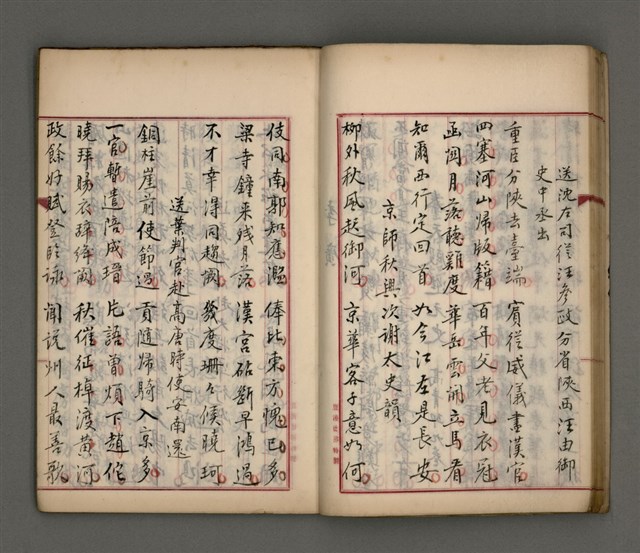 送沈左司從汪參政分省陝西汪由御
史中丞出
重臣分陝去臺端　賓從威儀盡漢官
四塞河山歸版籍　百年父老見衣冠
函關月落聽雞度　華岳雲開立馬看
知爾西行定回首　如今江左是長安
京師秋興次謝太史韻
柳外秋風起御河　京華客子意如何
伎同南郭知應濫　俸比東方愧已多
梁寺鐘來殘月落　漢宮砧斷早鴻過
不才幸得同趨闕　幾度珊珊候曉珂
送葉判官赴高唐時使安南還
銅柱崖前使節過　貢隨歸騎入京多
一官暫遣陪成瑨　片語曾煩下趙佗
曉拜賜衣辭絳闕　秋催征棹渡黃河
政餘好賦登臨詠　聞說州人最善歌